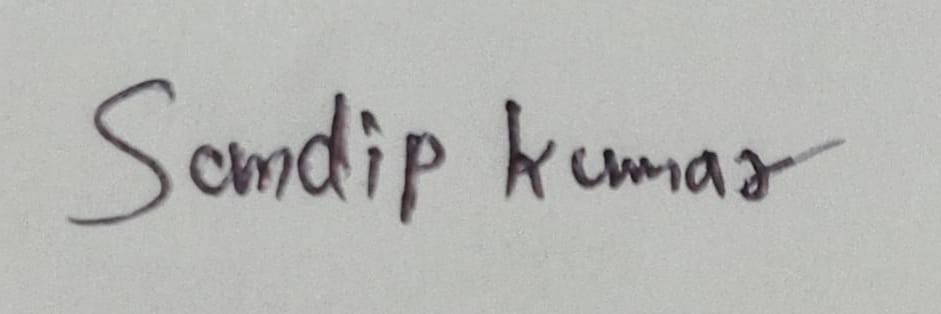 Sandip kumar